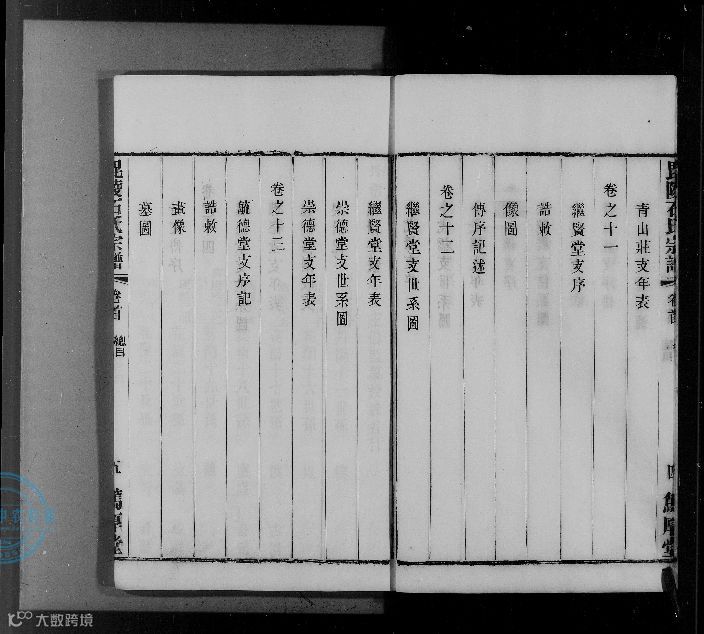 毘陵石氏宗譜 卷首
四
青山莊支年表
卷之十一
繼賢堂支序
誥敕
像圖
傳序記述
卷之十二
繼賢堂支世系圖
繼賢堂支年表
崇德堂支世系圖
崇德堂支年表
卷之十三
毓德堂支序記
誥敕
畫像
墓圖
毘陵石氏宗譜 卷首 總目
五
厚堂
大数跨境